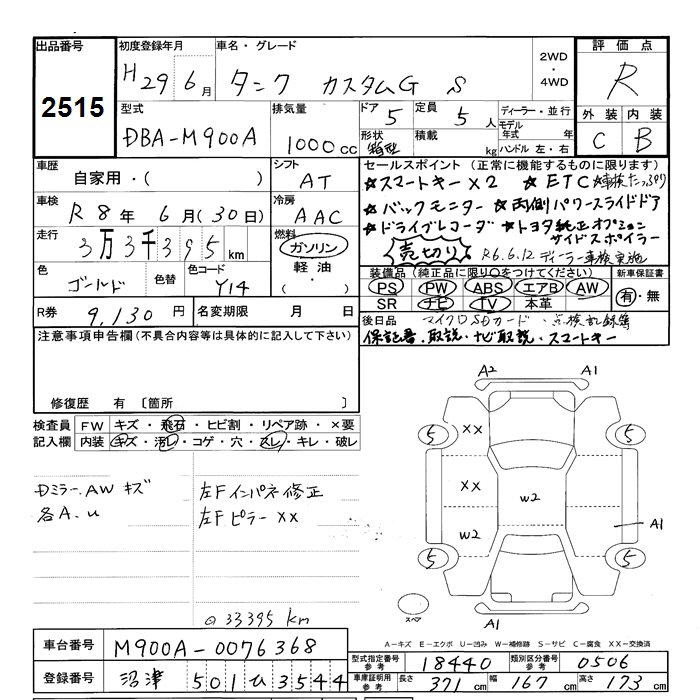 出品番号
2515
初度登録年月
H29 6月
車名・グレード
タンク カスタムG S
2WD
・
4WD
評価点
R
外装 内装
C B
型式
DBA-M900A
排気量
1000cc
ドア 5
形状 箱型
定員 5人
積載 kg
ディーラー・並行
モデル年式 年
ハンドル 左・右
車歴
自家用・( )
シフト
AT
車検
R8年 6月(30日)
冷房
AAC
走行
3万3千395km
燃料
ガソリン
軽油・
( )
色
ゴールド
色替
色コード
Y14
R券 9,130円
名変期限 月 日
セールスポイント(正常に機能するものに限ります)
★スマートキー×2 ★ETC ★車検たっぷり
★バックモニター ★両側パワースライドドア
★ドライブレコーダ ★トヨタ純正オプション
サイドスポイラー
売切り R6.6.12 ディーラー車検実施
装備品(純正品に限り○をつけてください)
PS PW ABS エアB AW
SR ナビ TV 本革
新車保証書
有・無
後日品 マイクロSDカード・点検記録簿
保証書・取説・ナビ取説・スマートキー
注意事項申告欄(不具合内容等は具体的に記入して下さい)
修復歴 有〔箇所 〕
検査員記入欄
FW キズ・飛石・ヒビ割・リペア跡・×要
内装 キズ・汚レ・コゲ・穴・スレ・キレ・破レ
Dミラー.AW キズ
各A.u
左Fインパネ修正
左Fピラー××
◎33395km
A2 A1
5 5
××
××
W2
W2
A1
5 5
スペア
A1
A-キズ E-エクボ U-凹み W-補修跡 S-サビ C-腐食 XX-交換済
車台番号 M900A-0076368
登録番号 沼津 501 ひ 3544
型式指定番号 参考 18440
類別区分番号 参考 0506
車庫証明用 参考 長さ 371cm 幅 167cm 高さ 173cm